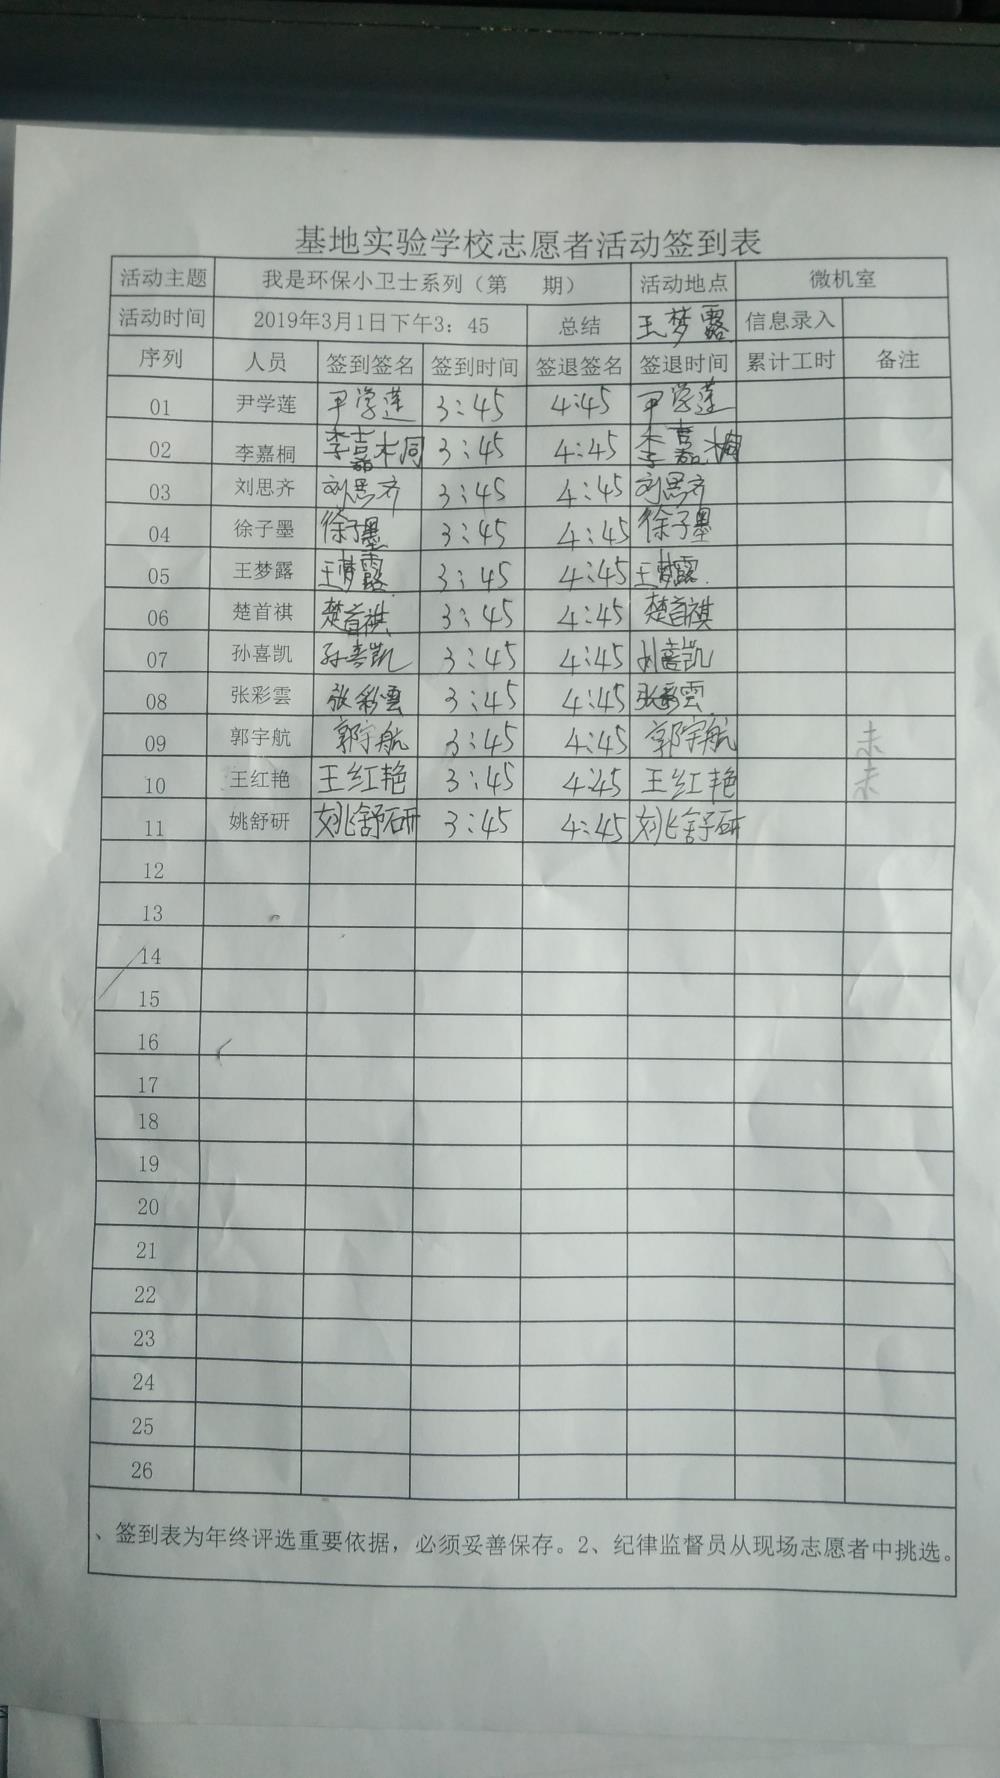 基地实验学校志愿者活动签到表
活动主题 我是环保小卫士系列（第 期） 活动地点 微机室
活动时间 2019年3月1日下午3：45 总结 王梦露 信息录入
序列 人员 签到签名 签到时间 签退签名 签退时间 累计工时 备注
01 尹学莲 尹学莲 3:45 4:45 尹学莲
02 李嘉桐 李嘉桐 3:45 4:45 李嘉桐
03 刘思齐 刘思齐 3:45 4:45 刘思齐
04 徐子墨 徐子墨 3:45 4:45 徐子墨
05 王梦露 王梦露 3:45 4:45 王梦露
06 楚首祺 楚首祺 3:45 4:45 楚首祺
07 孙喜凯 孙喜凯 3:45 4:45 孙喜凯
08 张彩雲 张彩雲 3:45 4:45 张彩雲
09 郭宇航 郭宇航 3:45 4:45 郭宇航 未
10 王红艳 王红艳 3:45 4:45 王红艳 未
11 姚舒研 姚舒研 3:45 4:45 姚舒研
12
13
14
15
16
17
18
19
20
21
22
23
24
25
26
、签到表为年终评选重要依据，必须妥善保存。2、纪律监督员从现场志愿者中挑选。